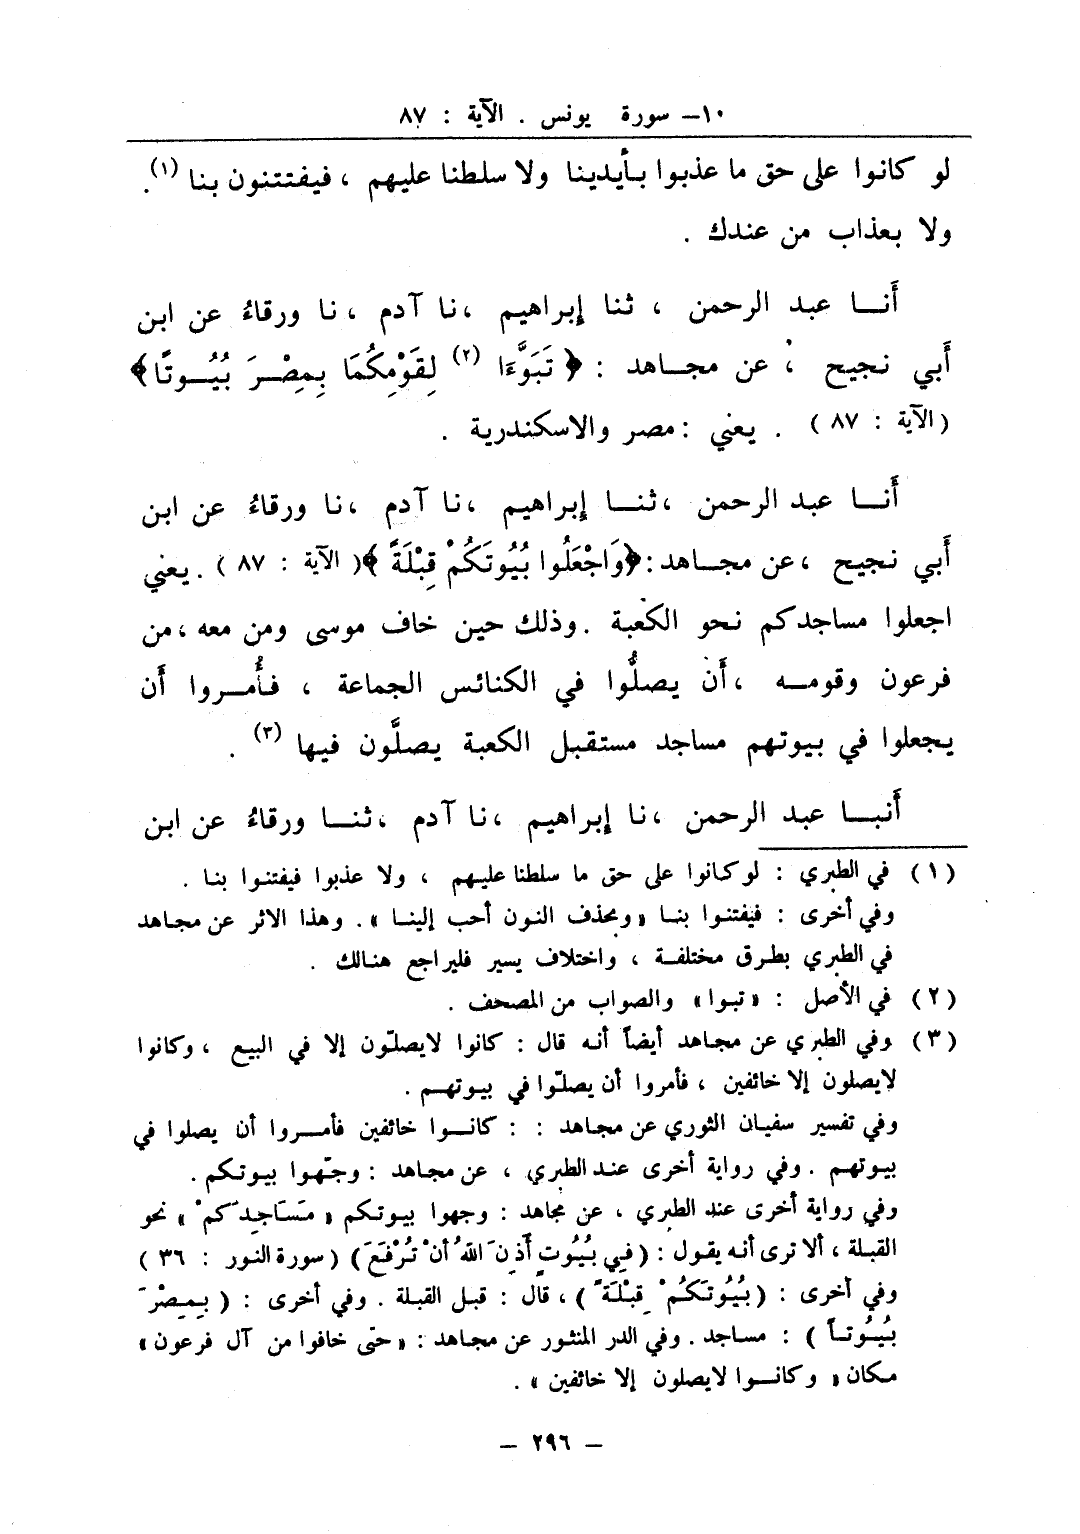 ١٠ – سورة يونس . الآية : ٨٧
لو كانوا على حق ما عذبوا بأيدينا ولا سلطنا عليهم ، فيفتتنون بنا (١) .
ولا بعذاب من عندك .
أنا عبد الرحمن ، ثنا إبراهيم ، نا آدم ، نا ورقاءُ عن ابن
أبي نجيح ، عن مجاهد : ﴿ تَبَوَّءَا (٢) لِقَوْمِكُمَا بِمِصْرَ بُيُوتًا ﴾
( الآية : ٨٧ ) . يعني : مصر والاسكندرية .
أنا عبد الرحمن ، ثنا إبراهيم ، نا آدم ، نا ورقاءُ عن ابن
أبي نجيح ، عن مجاهد : ﴿ وَاجْعَلُوا بُيُوتَكُمْ قِبْلَةً ﴾ ( الآية : ٨٧ ) . يعني
اجعلوا مساجدكم نحو الكعبة . وذلك حين خاف موسى ومن معه ، من
فرعون وقومه ، أن يصلُّوا في الكنائس الجماعة ، فأُمروا أن
يجعلوا في بيوتهم مساجد مستقبل الكعبة يصلَّون فيها (٣) .
أنبا عبد الرحمن ، نا إبراهيم ، نا آدم ، ثنا ورقاءُ عن ابن
( ١ ) في الطبري : لو كانوا على حق ما سلطنا عليهم ، ولا عذبوا فيفتنوا بنا .
وفي أخرى : فيفتنوا بنا « وبحذف النون أحب إلينا » . وهذا الاثر عن مجاهد
في الطبري بطرق مختلفة ، واختلاف يسير فليراجع هنالك .
( ٢ ) في الأصل : « تبوا » والصواب من المصحف .
( ٣ ) وفي الطبري عن مجاهد أيضاً أنه قال : كانوا لايصلّون إلا في البيع ، وكانوا
لايصلون إلا خائفين ، فأمروا أن يصلّوا في بيوتهم .
وفي تفسير سفيان الثوري عن مجاهد : : كانوا خائفين فأمروا أن يصلوا في
بيوتهم . وفي رواية أخرى عند الطبري ، عن مجاهد : وجّهوا بيوتكم .
وفي رواية أخرى عند الطبري ، عن مجاهد : وجهوا بيوتكم « مَسَاجِدَكم » نحو
القبلة ، ألا ترى أنه يقول : ( فِي بُيُوتٍ أَذِنَ اللهُ أنْ تُرْفَعَ ) ( سورة النور : ٣٦ )
وفي أخرى : ( بُيُوتَكُمْ قِبْلَةً ) ، قال : قبل القبلة . وفي أخرى : ( بِمِصْرَ
بُيُوتاً ) : مساجد . وفي الدر المنثور عن مجاهد : « حتى خافوا من آل فرعون »
مكان « وكانوا لايصلون إلا خائفين » .
– ٢٩٦ –